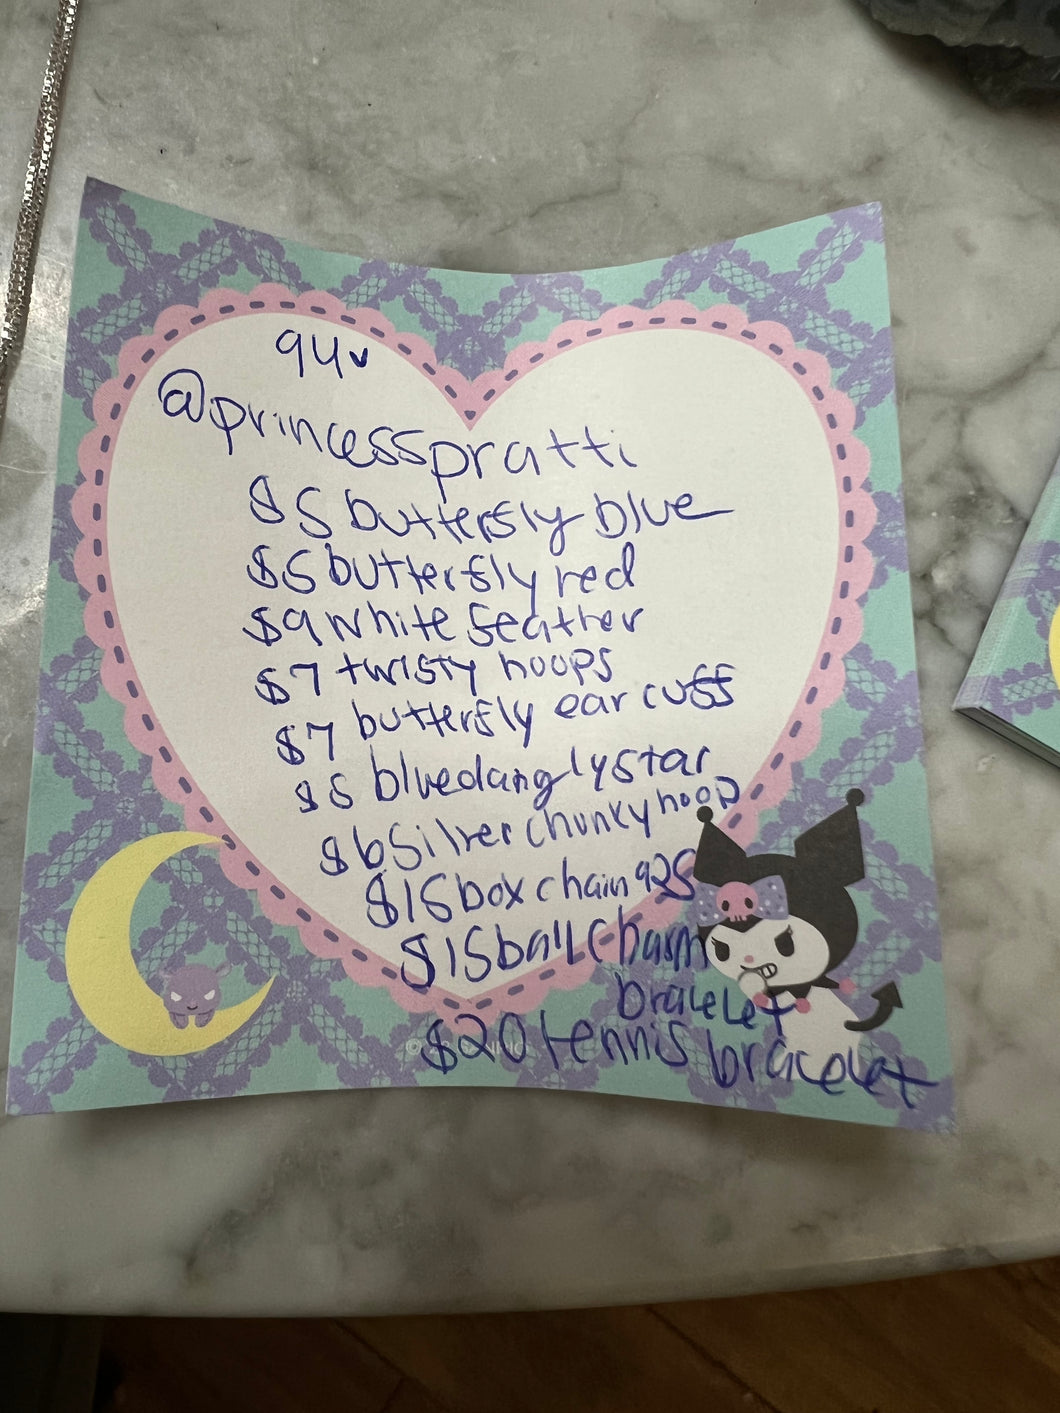 94✓
@princesspratti
$5 butterfly blue
$5 butterfly red
$9 white feather
$7 twisty hoops
$7 butterfly ear cuff
$5 bluedanglystar
$6 silver chunky hoop
$15 box chain 925
$15 ball charm
bracelet
$20 tennis bracelet